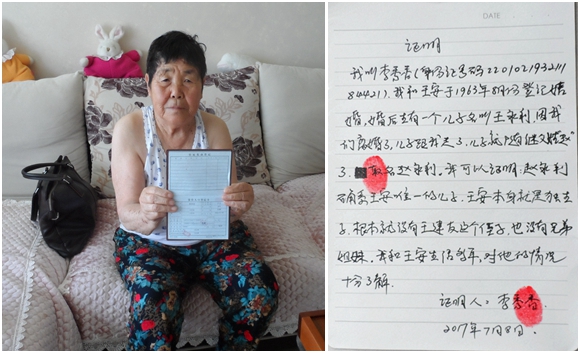 DATE
证明
我叫李秀香(身份证号码220102193211
184421)。我和王安于1963年8月份登记结
婚,婚后生有一个儿子名叫王永利,因我
们离婚了,儿子跟我走了,儿子就随继父姓赵
了。取名赵永利。我可以证明,赵永利
王安唯一的儿子。王安本身就是独生
子,根本就没有王建友这个侄子,也没有兄弟
姐妹。我和王安生活多年,对他的情况
十分了解。
证明人:李秀香
2017年7月8日.